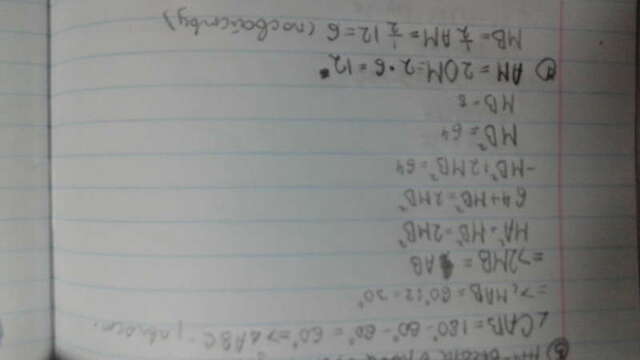 ∠CAB = 180° - 60° - 60° = 60° => △ABC - равност.
=> ∠MAB = 60° : 2 = 30°
=> 2MB = AB
MA² + MB² = 2MB²
64 + MB² = 2MB²
-MB² + 2MB² = 64
MB² = 64
MB = 8
AM = 2OM = 2 · 6 = 12
MB = ½ AM = ½ 12 = 6 (по свойству)